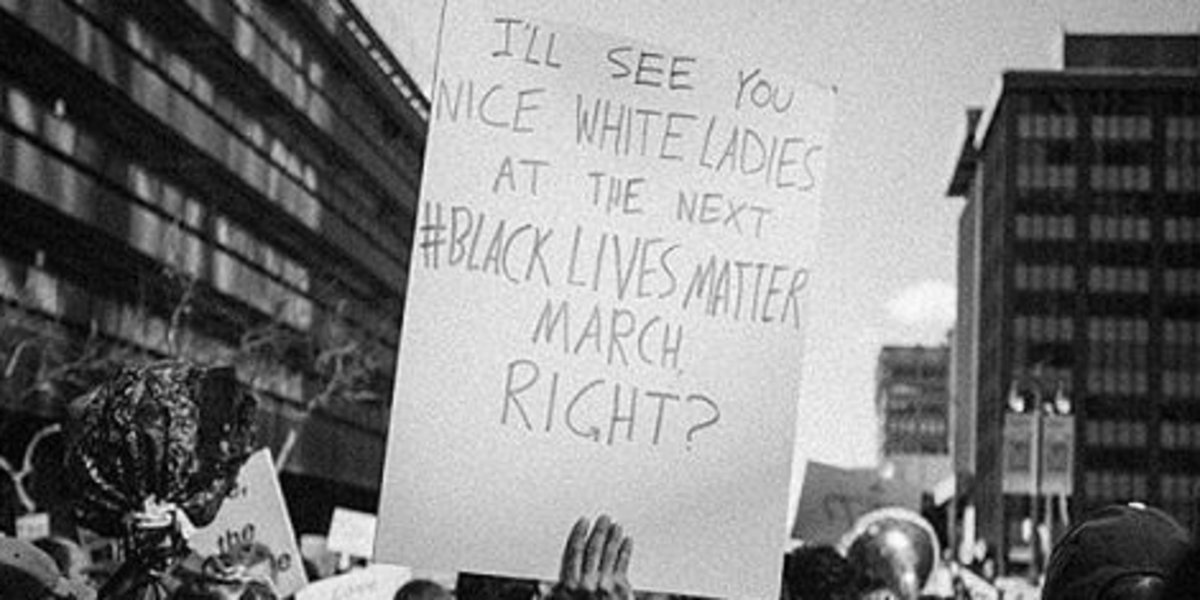 I'LL SEE YOU
NICE WHITE LADIES
AT THE NEXT
#BLACK LIVES MATTER
MARCH,
RIGHT?
the